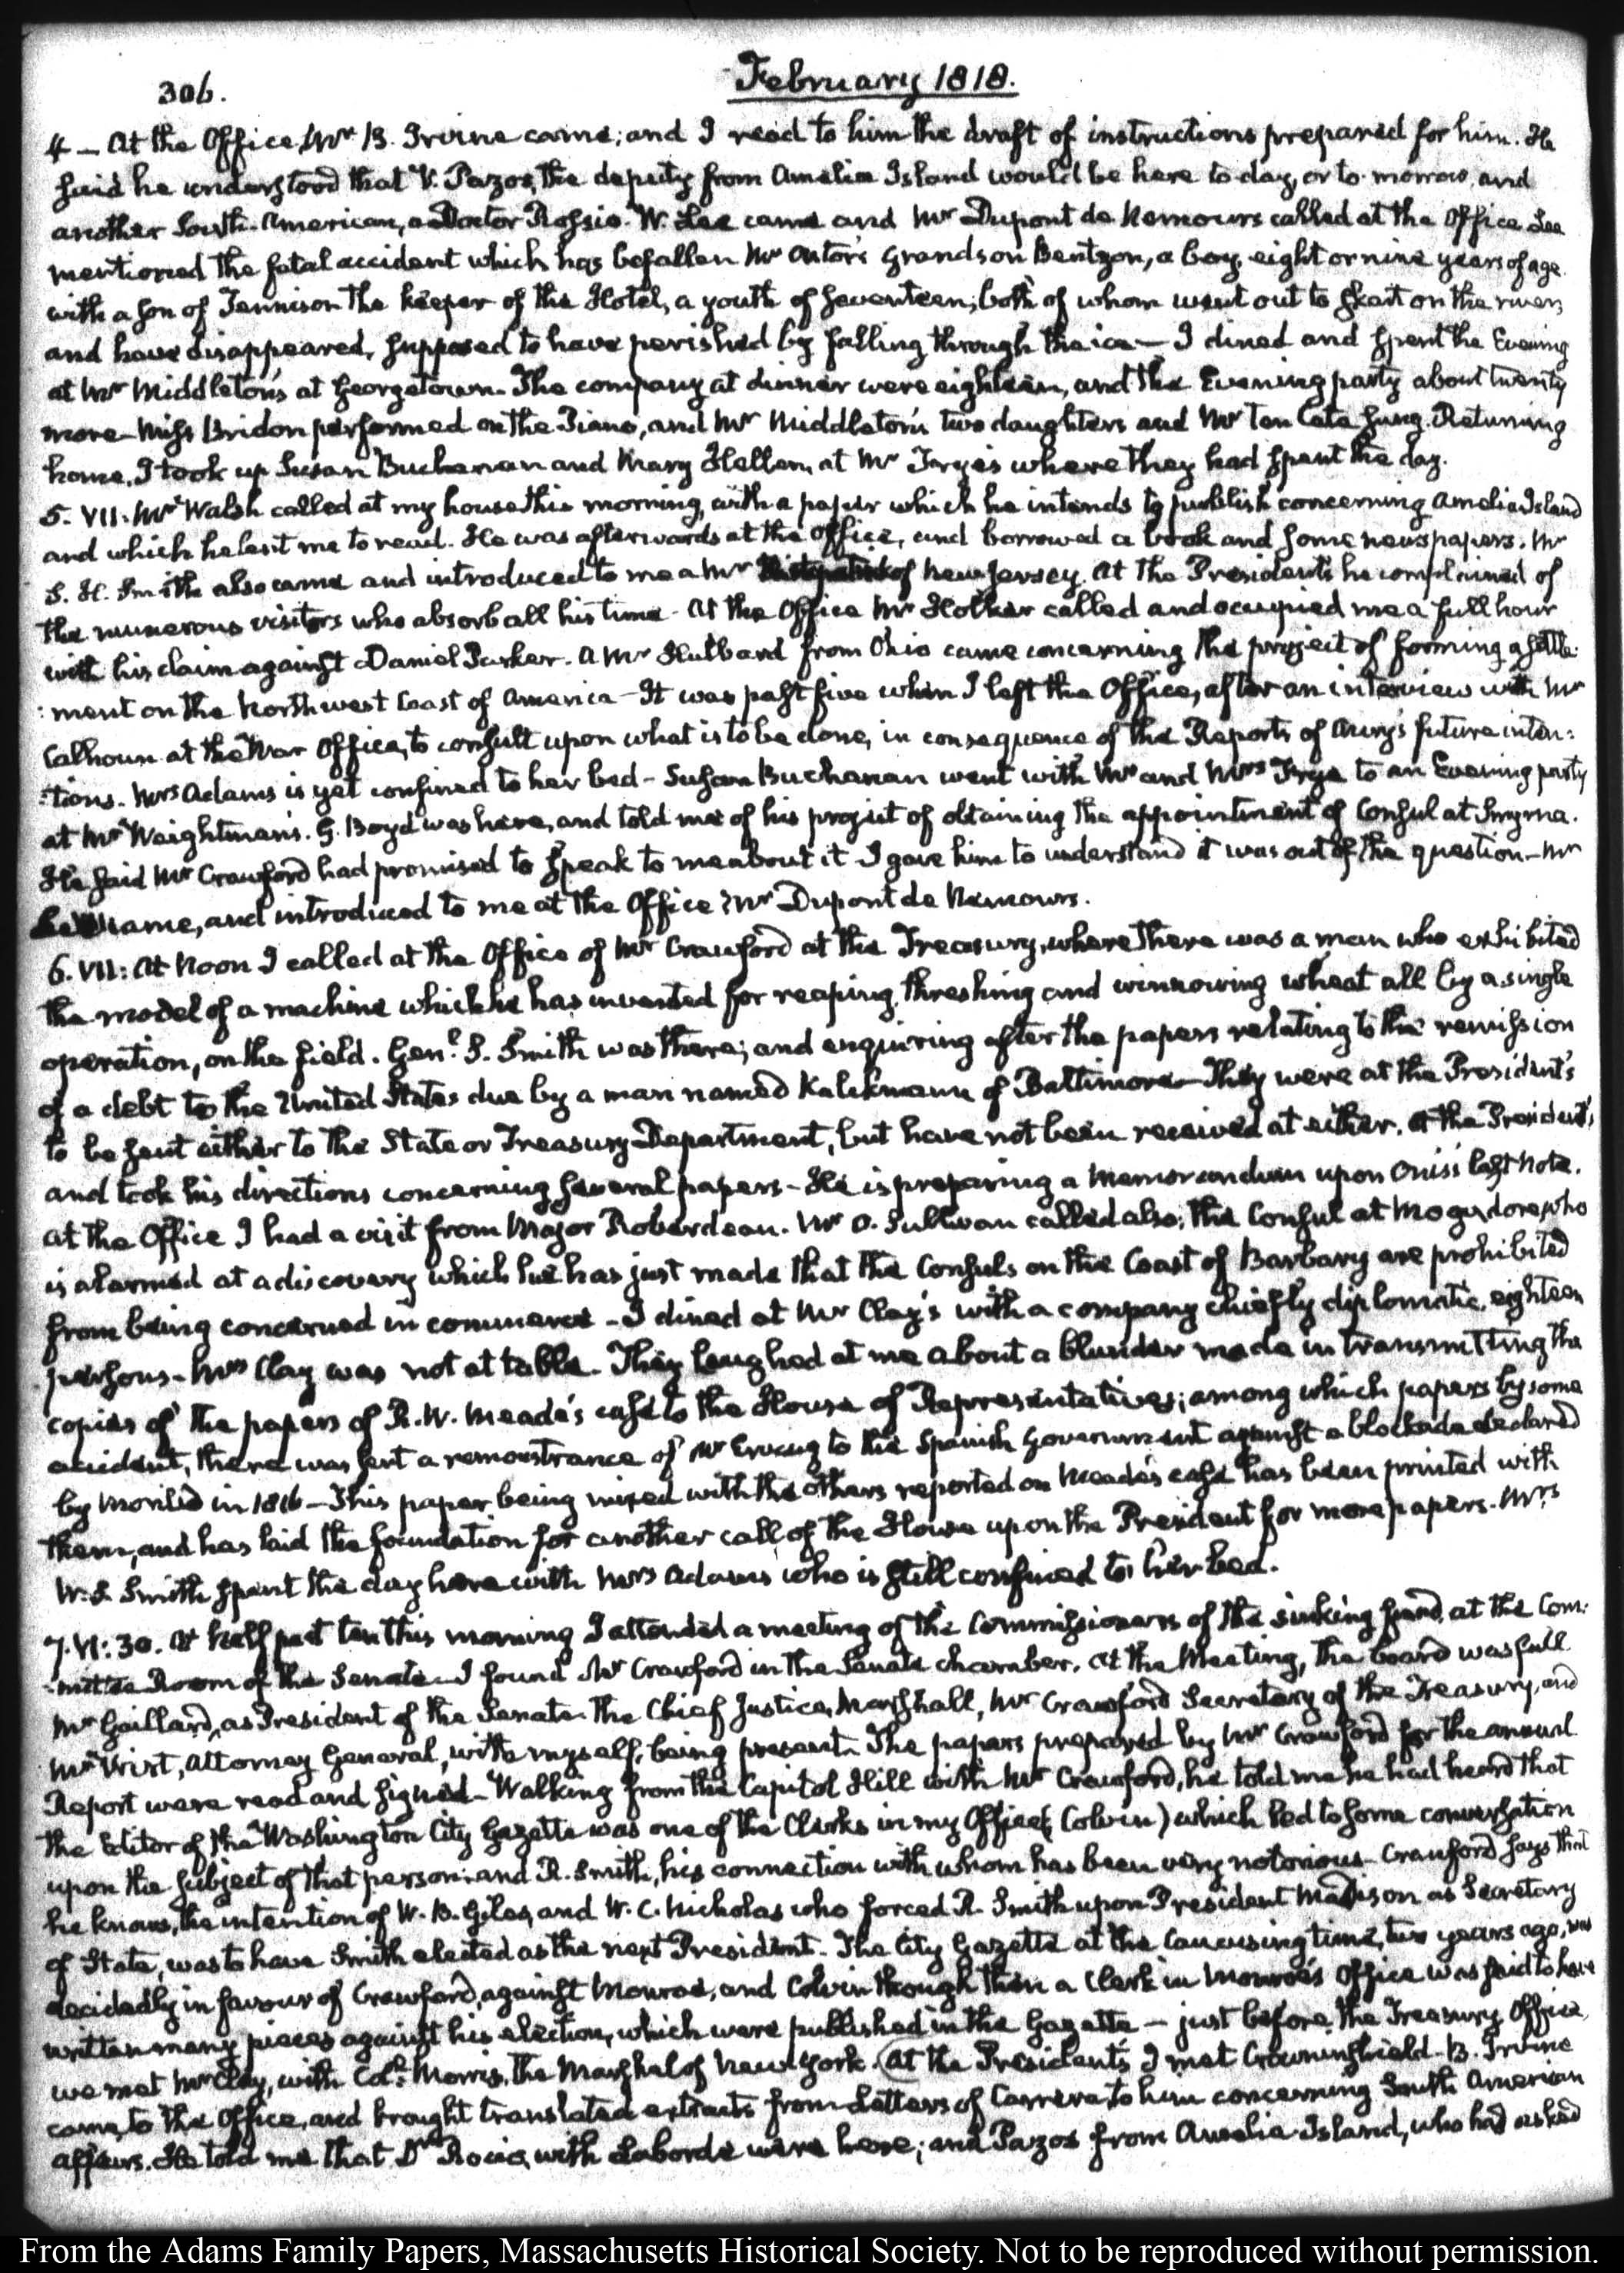 306.
February 1818.
4 — At the Office, Mr B. Irvine came; and I read to him the draft of instructions prepared for him. He
said he understood that V. Pazos, the deputy from Amelia Island would be here to-day, or to-morrow, and
another South-American, a Doctor Rossio. W. Lee came and Mr Dupont de Nemours called at the Office. Lee
mentioned the fatal accident which has befallen Mr Astor's Grandson Bentzon, a boy, eight or nine years of age.
with a son of Tennison the keeper of the Hotel, a youth of seventeen; both of whom went out to skait on the river,
and have disappeared, supposed to have perished by falling through the ice — I dined and spent the Evening
at Mr Middleton's at Georgetown. The company at dinner were eighteen, and the Evening party about twenty
more — Miss Bridon performed on the Piano, and Mr Middleton's two daughters and Mr Ten Cate sung. Returning
home, I took up Susan Buchanan and Mary Hellen, at Mr Frye's where they had spent the day.
5. VII: Mr Walsh called at my house this morning, with a paper which he intends to publish concerning Amelia Island
and which he lent me to read. He was afterwards at the office, and borrowed a book and some newspapers. Mr
S. H. Smith also came and introduced to me a Mr of New Jersey. At the President's he complained of
the numerous visitors who absorb all his time — At the Office Mr Holker called and occupied me a full hour
with his claim against Daniel Parker. A Mr Hulbard from Ohio came concerning the project of forming a settle:
:ment on the North west Coast of America — It was past five when I left the Office, after an interview with Mr
Calhoun at the War Office, to consult upon what is to be done, in consequence of the Reports of Aury's future inten:
:tions. Mrs Adams is yet confined to her bed — Susan Buchanan went with Mr and Mrs Frye to an Evening party
at Mr Weightman's. G. Boyd was here, and told me of his project of obtaining the appointment of Consul at Smyrna.
He said Mr Crawford had promised to speak to me about it. I gave him to understand it was out of the question — Mr
came, and introduced to me at the Office Mr Dupont de Nemours.
6. VII: At Noon I called at the Office of Mr Crawford at the Treasury, where there was a man who exhibited
the model of a machine which he has invented for reaping, threshing and winnowing wheat all by a single
operation, on the field. Genl S. Smith was there; and enquiring after the papers relating to the remission
of a debt to the United States due by a man named Kalckmann of Baltimore — They were at the President's
to be sent either to the State or Treasury Department, but have not been received at either. At the President's
and took his directions concerning several papers — He is preparing a Memorandum upon Onis's last Note.
at the Office I had a visit from Major Roberdeau. Mr O. Sullivan called also; the Consul at Mogadore, who
is alarmed at a discovery which he has just made that the Consuls on the Coast of Barbary are prohibited
from being concerned in commerce — I dined at Mr Clay's with a company chiefly diplomatic, eighteen
persons — Mrs Clay was not at table. They laughed at me about a blunder made in transmitting the
copies of the papers of R. W. Meade's case to the House of Representatives; among which papers by some
accident, there was sent a remonstrance of Mr Erving to the Spanish Government against a blockade declared
by Morillo in 1816 — This paper being mixed with the others reported on Meade's case has been printed with
them, and has laid the foundation for another call of the House upon the President for more papers. Mrs
W. S. Smith spent the day here with Mrs Adams who is still confined to her bed.
7. VI: 30. At half past ten this morning I attended a meeting of the Commissioners of the sinking fund, at the Com:
:mittee Room of the Senate — I found Mr Crawford in the Senate chamber. At the Meeting, the board was full
Mr Gaillard, as President of the Senate, the Chief Justice, Marshall, Mr Crawford Secretary of the Treasury, and
Mr Wirt, Attorney General, with myself, being present. The papers prepared by Mr Crawford for the annual
Report were read and signed — Walking from the Capitol Hill with Mr Crawford, he told me he had heard that
the Editor of the Washington City Gazette was one of the Clerks in my Office (Colvin) which led to some conversation
upon the subject of that person: and R. Smith, his connection with whom has been very notorious — Crawford says that
he knows, the intention of W. B. Giles, and W. C. Nicholas who forced R. Smith upon President Madison as Secretary
of State, was to have Smith elected as the next President. The City Gazette at the Caucusing time, two years ago, was
decidedly in favour of Crawford, against Monroe, and Colvin though then a Clerk in Monroe's Office was said to have
written many pieces against his election, which were published in the Gazette — just before the Treasury Office,
we met Mr Clay, with Coll Morris, the Marshal of New York. At the President's I met Crowninshield. B. Irvine
came to the Office, and brought translated extracts from Letters of Carrera to him concerning South American
affairs. He told me that Dr Rocio, with Laborde were here; and Pazos from Amelia-Island, who had asked
From the Adams Family Papers, Massachusetts Historical Society. Not to be reproduced without permission.